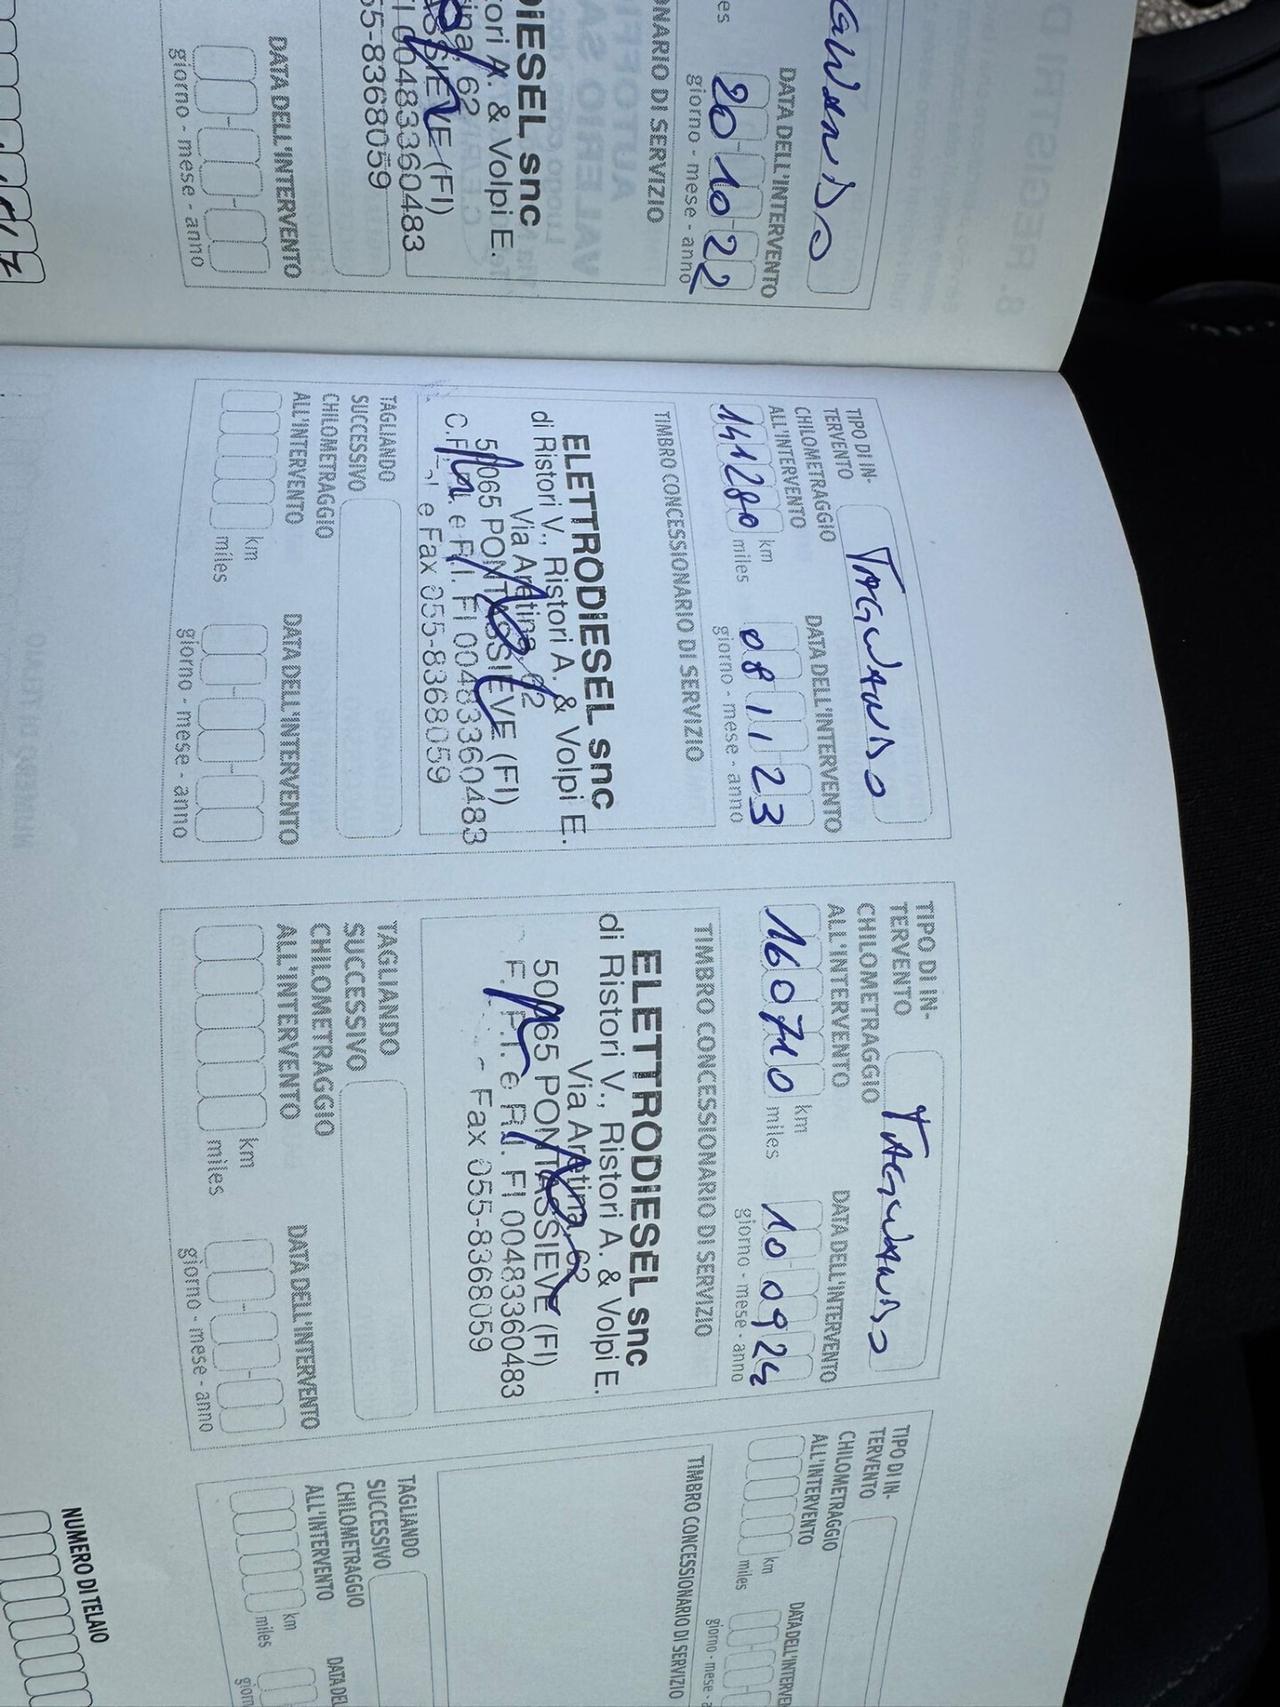 TAGLIANDO
DATA DELL'INTERVENTO
20 10 22
giorno - mese - anno
CONCESSIONARIO DI SERVIZIO
DIESEL snc
tori A. & Volpi E.
62
SIEVE (FI)
FI 00483360483
55-8368059
DATA DELL'INTERVENTO
giorno - mese - anno
TIPO DI IN-
TERVENTO
TAGLIANDO
CHILOMETRAGGIO
ALL'INTERVENTO
DATA DELL'INTERVENTO
141280
km
miles
08 11 23
giorno - mese - anno
TIMBRO CONCESSIONARIO DI SERVIZIO
ELETTRODIESEL snc
di Ristori V., Ristori A. & Volpi E.
Via Aretina, 62
50065 PONTASSIEVE (FI)
C.F. e R.I. FI 00483360483
e Fax 055-8368059
TAGLIANDO
SUCCESSIVO
CHILOMETRAGGIO
ALL'INTERVENTO
DATA DELL'INTERVENTO
km
miles
giorno - mese - anno
TIPO DI IN-
TERVENTO
TAGLIANDO
CHILOMETRAGGIO
ALL'INTERVENTO
DATA DELL'INTERVENTO
160710
km
miles
10 09 24
giorno - mese - anno
TIMBRO CONCESSIONARIO DI SERVIZIO
ELETTRODIESEL snc
di Ristori V., Ristori A. & Volpi E.
Via Aretina, 62
50065 PONTASSIEVE (FI)
F. P.I. e R.I. FI 00483360483
- Fax 055-8368059
TAGLIANDO
SUCCESSIVO
CHILOMETRAGGIO
ALL'INTERVENTO
DATA DELL'INTERVENTO
km
miles
giorno - mese - anno
TIPO DI IN-
TERVENTO
CHILOMETRAGGIO
ALL'INTERVENTO
DATA DELL'INTERVEN
km
miles
giorno - mese - a
TIMBRO CONCESSIONARIO DI SERVIZIO
TAGLIANDO
SUCCESSIVO
CHILOMETRAGGIO
ALL'INTERVENTO
DATA DEL
km
miles
giorn
NUMERO DI TELAIO